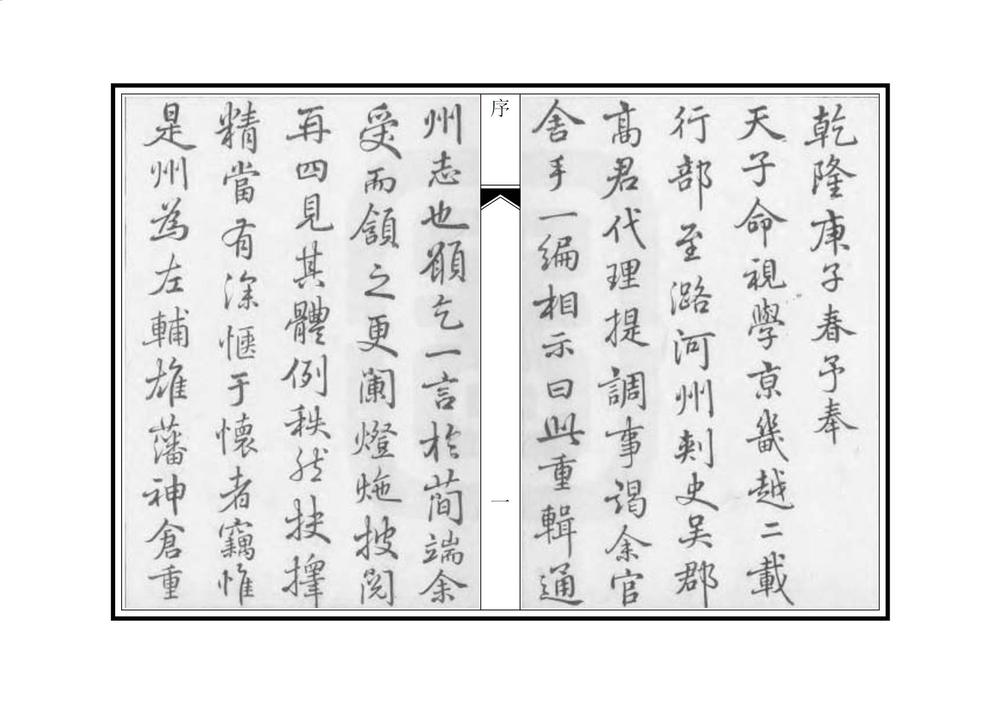 乾隆庚子春予奉
天子命視學京畿越二載
行部至潞河州刺史吴郡
高君代理提調事謁余官
舍手一編相示曰此重輯通
序
一
州志也願乞一言於蕳端余
受而頷之更闌燈灺披閱
再四見其體例秩然抉擇
精當有深愜于懷者竊惟
是州為左輔雄藩神倉重